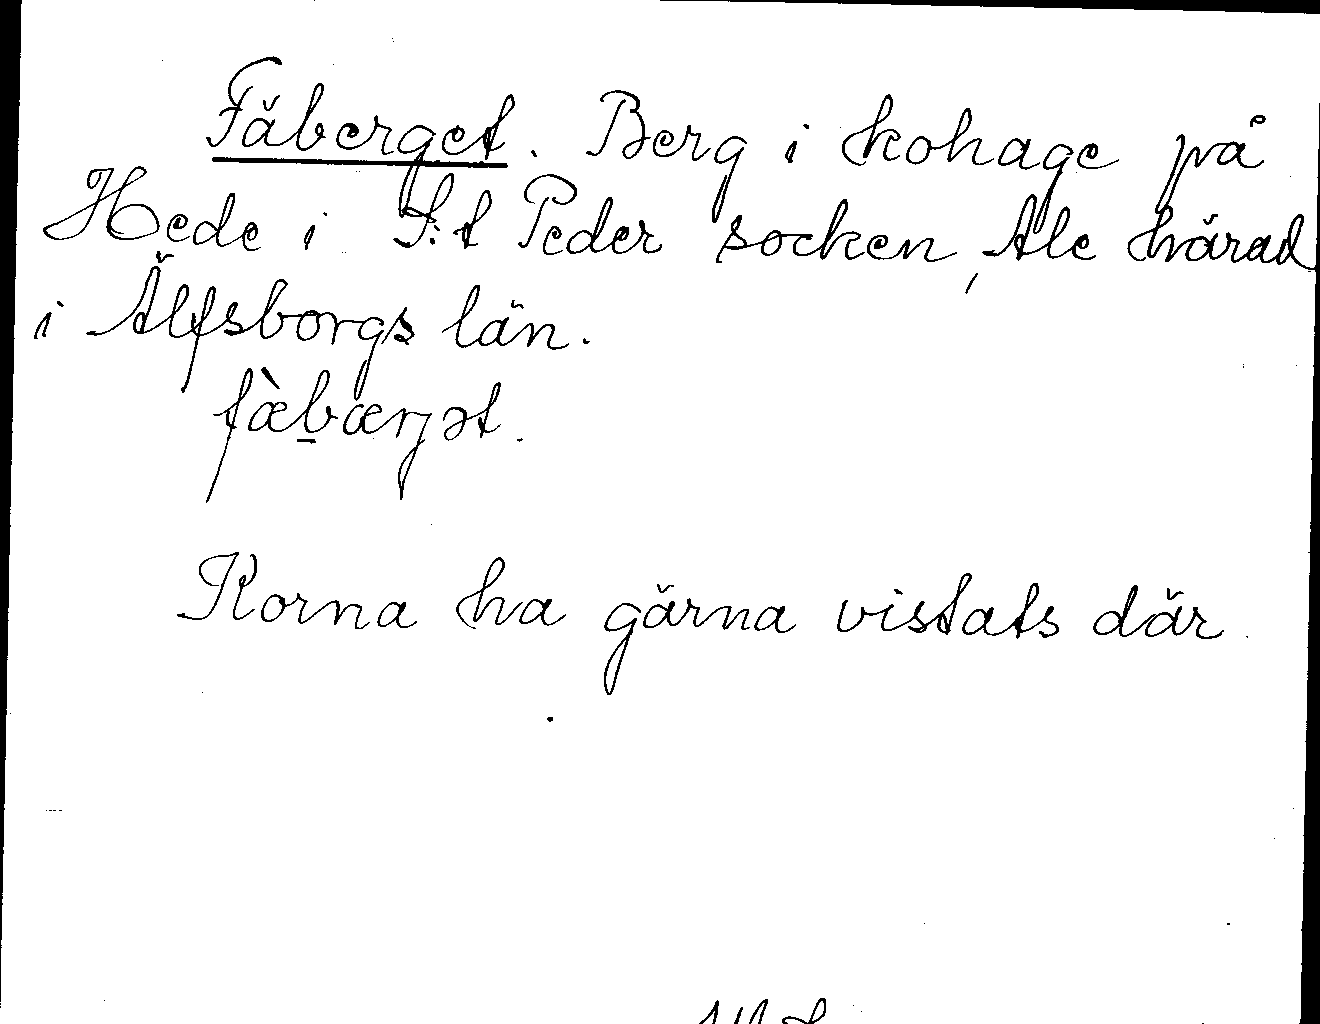 Fäberget. Berg i kohage på
Hede i S:t Peder socken, Ale härad
i Älfsborgs län.
fæ̀b̲ærjət.
Korna ha gärna vistats där.